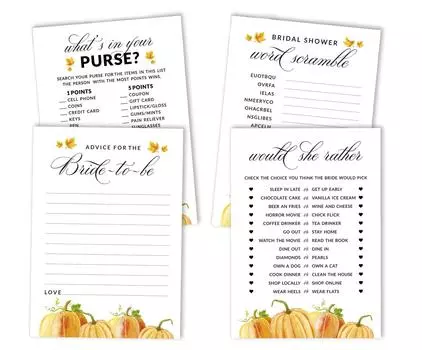 what's in your
PURSE?
SEARCH YOUR PURSE FOR THE ITEMS IN THIS LIST
THE PERSON WITH THE MOST POINTS WINS.
1 POINTS 5 POINTS
CELL PHONE COUPON
COINS GIFT CARD
CREDIT CARD LIPSTICK/GLOSS
KEYS GUM/MINTS
PEN PAIN RELIEVER
SUNGLASSES
BRIDAL SHOWER
word scramble
EUOTBQU
OVRFA
IELAS
NMEERYCO
OHACRBEL
NSGLIBES
ADVICE FOR THE
Bride-to-be
LOVE
would she rather
CHECK THE CHOICE YOU THINK THE BRIDE WOULD PICK
SLEEP IN LATE or GET UP EARLY
CHOCOLATE CAKE or VANILLA ICE CREAM
BEER AN FRIES or WINE AND CHEESE
HORROR MOVIE or CHICK FLICK
COFFEE DRINKER or TEA DRINKER
GO OUT or STAY HOME
WATCH THE MOVIE or READ THE BOOK
DINE OUT or DINE IN
DIAMONDS or PEARLS
OWN A DOG or OWN A CAT
COOK DINNER or CLEAN THE HOUSE
SHOP LOCALLY or SHOP ONLINE
WEAR HEELS or WEAR FLATS